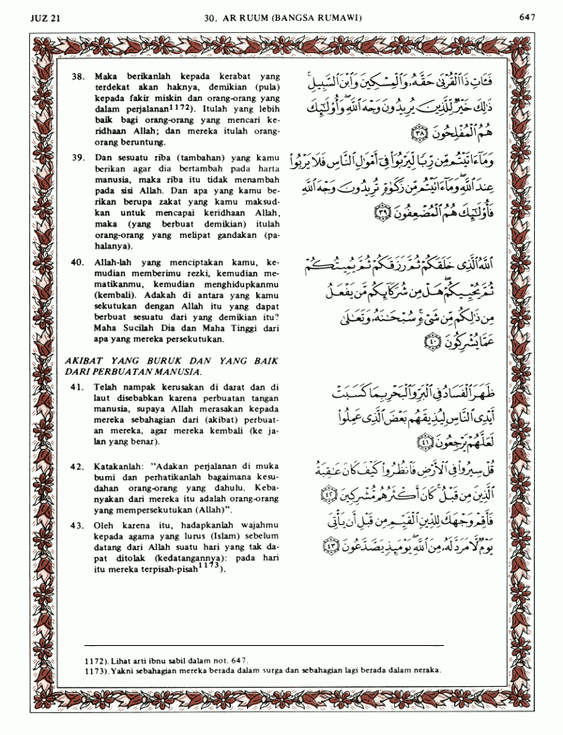 JUZ 21 30. AR RUUM (BANGSA RUMAWI) 647
38. Maka berikanlah kepada kerabat yang
terdekat akan haknya, demikian (pula)
kepada fakir miskin dan orang-orang yang
dalam perjalanan1172). Itulah yang lebih
baik bagi orang-orang yang mencari ke-
ridhaan Allah; dan mereka itulah orang-
orang beruntung.
فَـَٔاتِ ذَا ٱلْقُرْبَىٰ حَقَّهُۥ وَٱلْمِسْكِينَ وَٱبْنَ ٱلسَّبِيلِ
ذَٰلِكَ خَيْرٌ لِّلَّذِينَ يُرِيدُونَ وَجْهَ ٱللَّهِ وَأُو۟لَٰٓئِكَ
هُمُ ٱلْمُفْلِحُونَ ٣٨
39. Dan sesuatu riba (tambahan) yang kamu
berikan agar dia bertambah pada harta
manusia, maka riba itu tidak menambah
pada sisi Allah. Dan apa yang kamu be-
rikan berupa zakat yang kamu maksud-
kan untuk mencapai keridhaan Allah,
maka (yang berbuat demikian) itulah
orang-orang yang melipat gandakan (pa-
halanya).
وَمَآ ءَاتَيْتُم مِّن رِّبًا لِّيَرْبُوَا۟ فِىٓ أَمْوَٰلِ ٱلنَّاسِ فَلَا يَرْبُوا۟
عِندَ ٱللَّهِ وَمَآ ءَاتَيْتُم مِّن زَكَوٰةٍ تُرِيدُونَ وَجْهَ ٱللَّهِ
فَأُو۟لَٰٓئِكَ هُمُ ٱلْمُضْعِفُونَ ٣٩
40. Allah-lah yang menciptakan kamu, ke-
mudian memberimu rezki, kemudian me-
matikanmu, kemudian menghidupkanmu
(kembali). Adakah di antara yang kamu
sekutukan dengan Allah itu yang dapat
berbuat sesuatu dari yang demikian itu?
Maha Sucilah Dia dan Maha Tinggi dari
apa yang mereka persekutukan.
ٱللَّهُ ٱلَّذِى خَلَقَكُمْ ثُمَّ رَزَقَكُمْ ثُمَّ يُمِيتُكُمْ
ثُمَّ يُحْيِيكُمْ هَلْ مِن شُرَكَآئِكُم مَّن يَفْعَلُ
مِن ذَٰلِكُم مِّن شَىْءٍ سُبْحَٰنَهُۥ وَتَعَٰلَىٰ
عَمَّا يُشْرِكُونَ ٤٠
AKIBAT YANG BURUK DAN YANG BAIK
DARI PERBUATAN MANUSIA.
41. Telah nampak kerusakan di darat dan di
laut disebabkan karena perbuatan tangan
manusia, supaya Allah merasakan kepada
mereka sebahagian dari (akibat) perbuat-
an mereka, agar mereka kembali (ke ja-
lan yang benar).
ظَهَرَ ٱلْفَسَادُ فِى ٱلْبَرِّ وَٱلْبَحْرِ بِمَا كَسَبَتْ
أَيْدِى ٱلنَّاسِ لِيُذِيقَهُم بَعْضَ ٱلَّذِى عَمِلُوا۟
لَعَلَّهُمْ يَرْجِعُونَ ٤١
42. Katakanlah: "Adakan perjalanan di muka
bumi dan perhatikanlah bagaimana kesu-
dahan orang-orang yang dahulu. Keba-
nyakan dari mereka itu adalah orang-orang
yang mempersekutukan (Allah)".
قُلْ سِيرُوا۟ فِى ٱلْأَرْضِ فَٱنظُرُوا۟ كَيْفَ كَانَ عَٰقِبَةُ
ٱلَّذِينَ مِن قَبْلُ كَانَ أَكْثَرُهُم مُّشْرِكِينَ ٤٢
43. Oleh karena itu, hadapkanlah wajahmu
kepada agama yang lurus (Islam) sebelum
datang dari Allah suatu hari yang tak da-
pat ditolak (kedatangannya): pada hari
itu mereka terpisah-pisah1173).
فَأَقِمْ وَجْهَكَ لِلدِّينِ ٱلْقَيِّمِ مِن قَبْلِ أَن يَأْتِىَ
يَوْمٌ لَّا مَرَدَّ لَهُۥ مِنَ ٱللَّهِ يَوْمَئِذٍ يَصَّدَّعُونَ ٤٣
1172). Lihat arti ibnu sabil dalam not. 647.
1173). Yakni sebahagian mereka berada dalam surga dan sebahagian lagi berada dalam neraka.